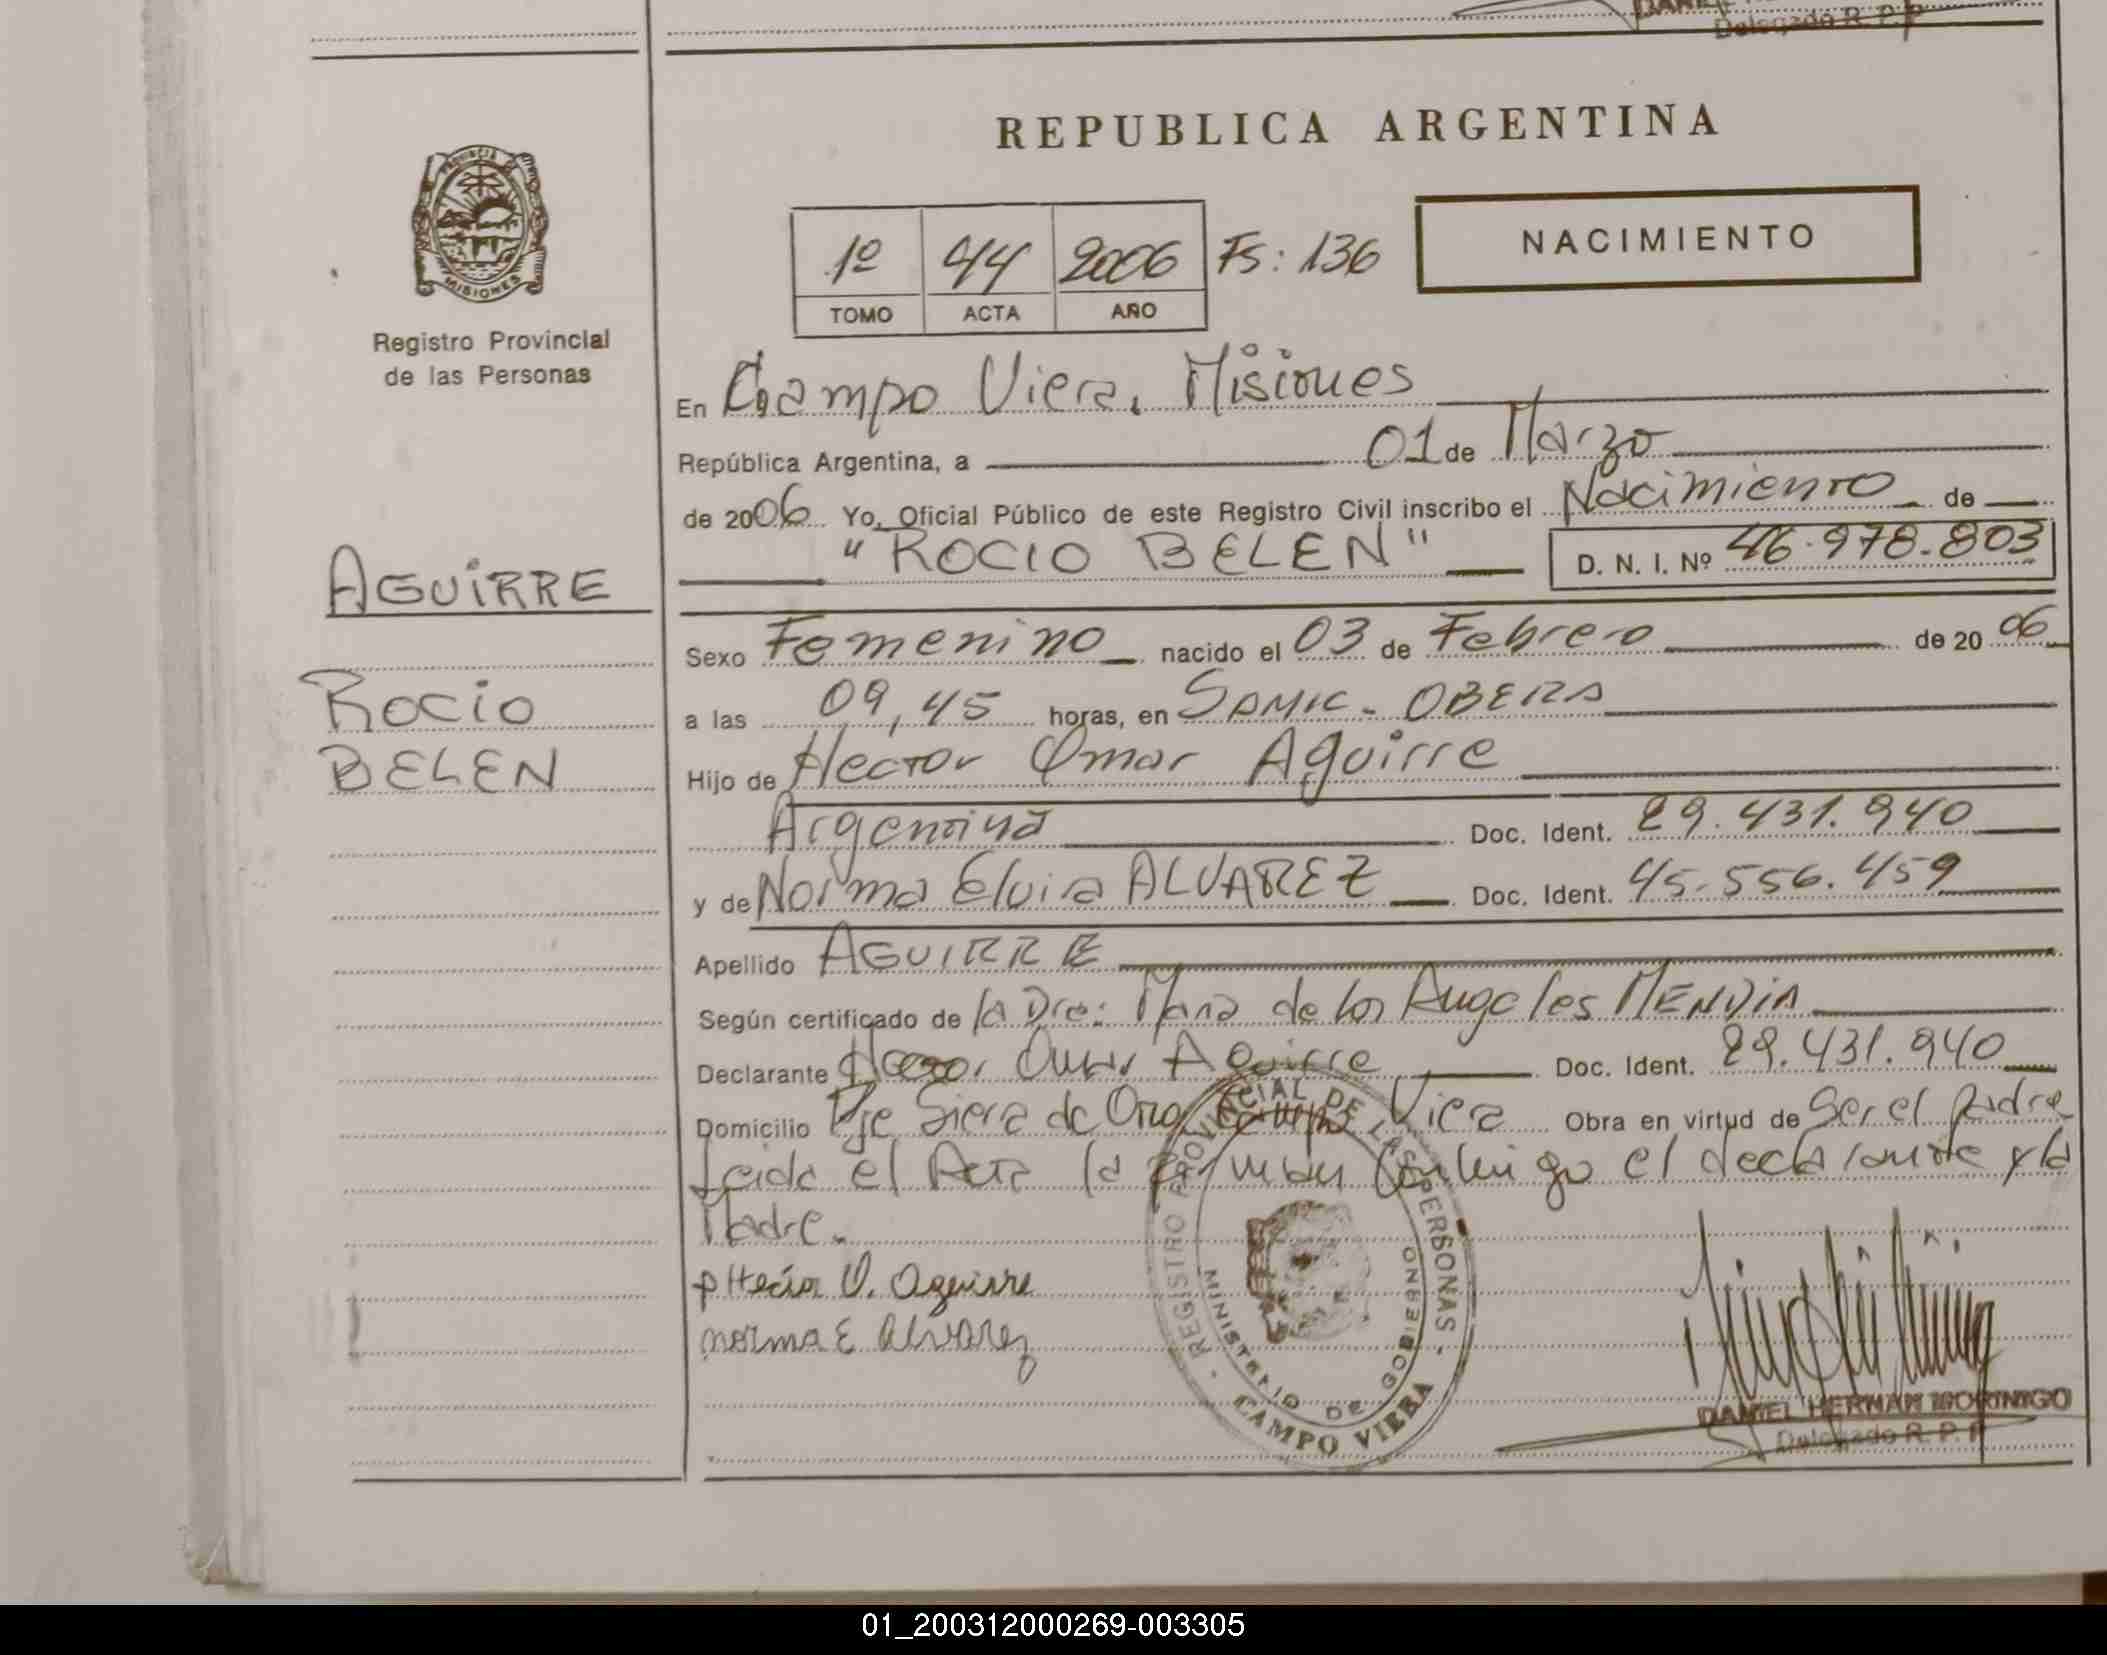 REPUBLICA ARGENTINA
PROVINCIA
MISIONES
Registro Provincial
de las Personas
1º 44 2006 Fs: 136
TOMO ACTA AÑO
NACIMIENTO
En Campo Viera, Misiones
República Argentina, a 01 de Marzo
de 2006 Yo, Oficial Público de este Registro Civil inscribo el Nacimiento de
"ROCIO BELEN" D. N. I. Nº 46.978.803
AGUIRRE
ROCIO
BELEN
Sexo Femenino nacido el 03 de Febrero de 20 06
a las 09,45 horas, en SAMIC - OBERA
Hijo de Hector Omar Aguirre
Argentina Doc. Ident. 29.431.940
y de Norma Elvira ALVAREZ Doc. Ident. 45.556.459
Apellido AGUIRRE
Según certificado de la Dra: Maria de los Angeles MENDIA
Declarante Hector Omar Aguirre Doc. Ident. 29.431.940
Domicilio Pje Siera de Oro Campo Viera Obra en virtud de Ser el padre
Leida el Acta la firman Conmigo el declarante y la
Madre.
Hector O. Aguirre
norma E Alvarez
REGISTRO PROVINCIAL DE LAS PERSONAS
MINISTERIO DE GOBIERNO
CAMPO VIERA
DANIEL HERNAN MORINIGO
Delegado R. P. P.
Delegado R. P. P
01_200312000269-003305